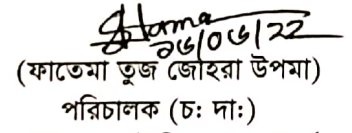 ২৬/০৬/22
(ফাতেমা তুজ জোহরা উপমা)
পরিচালক (চ: দা:)